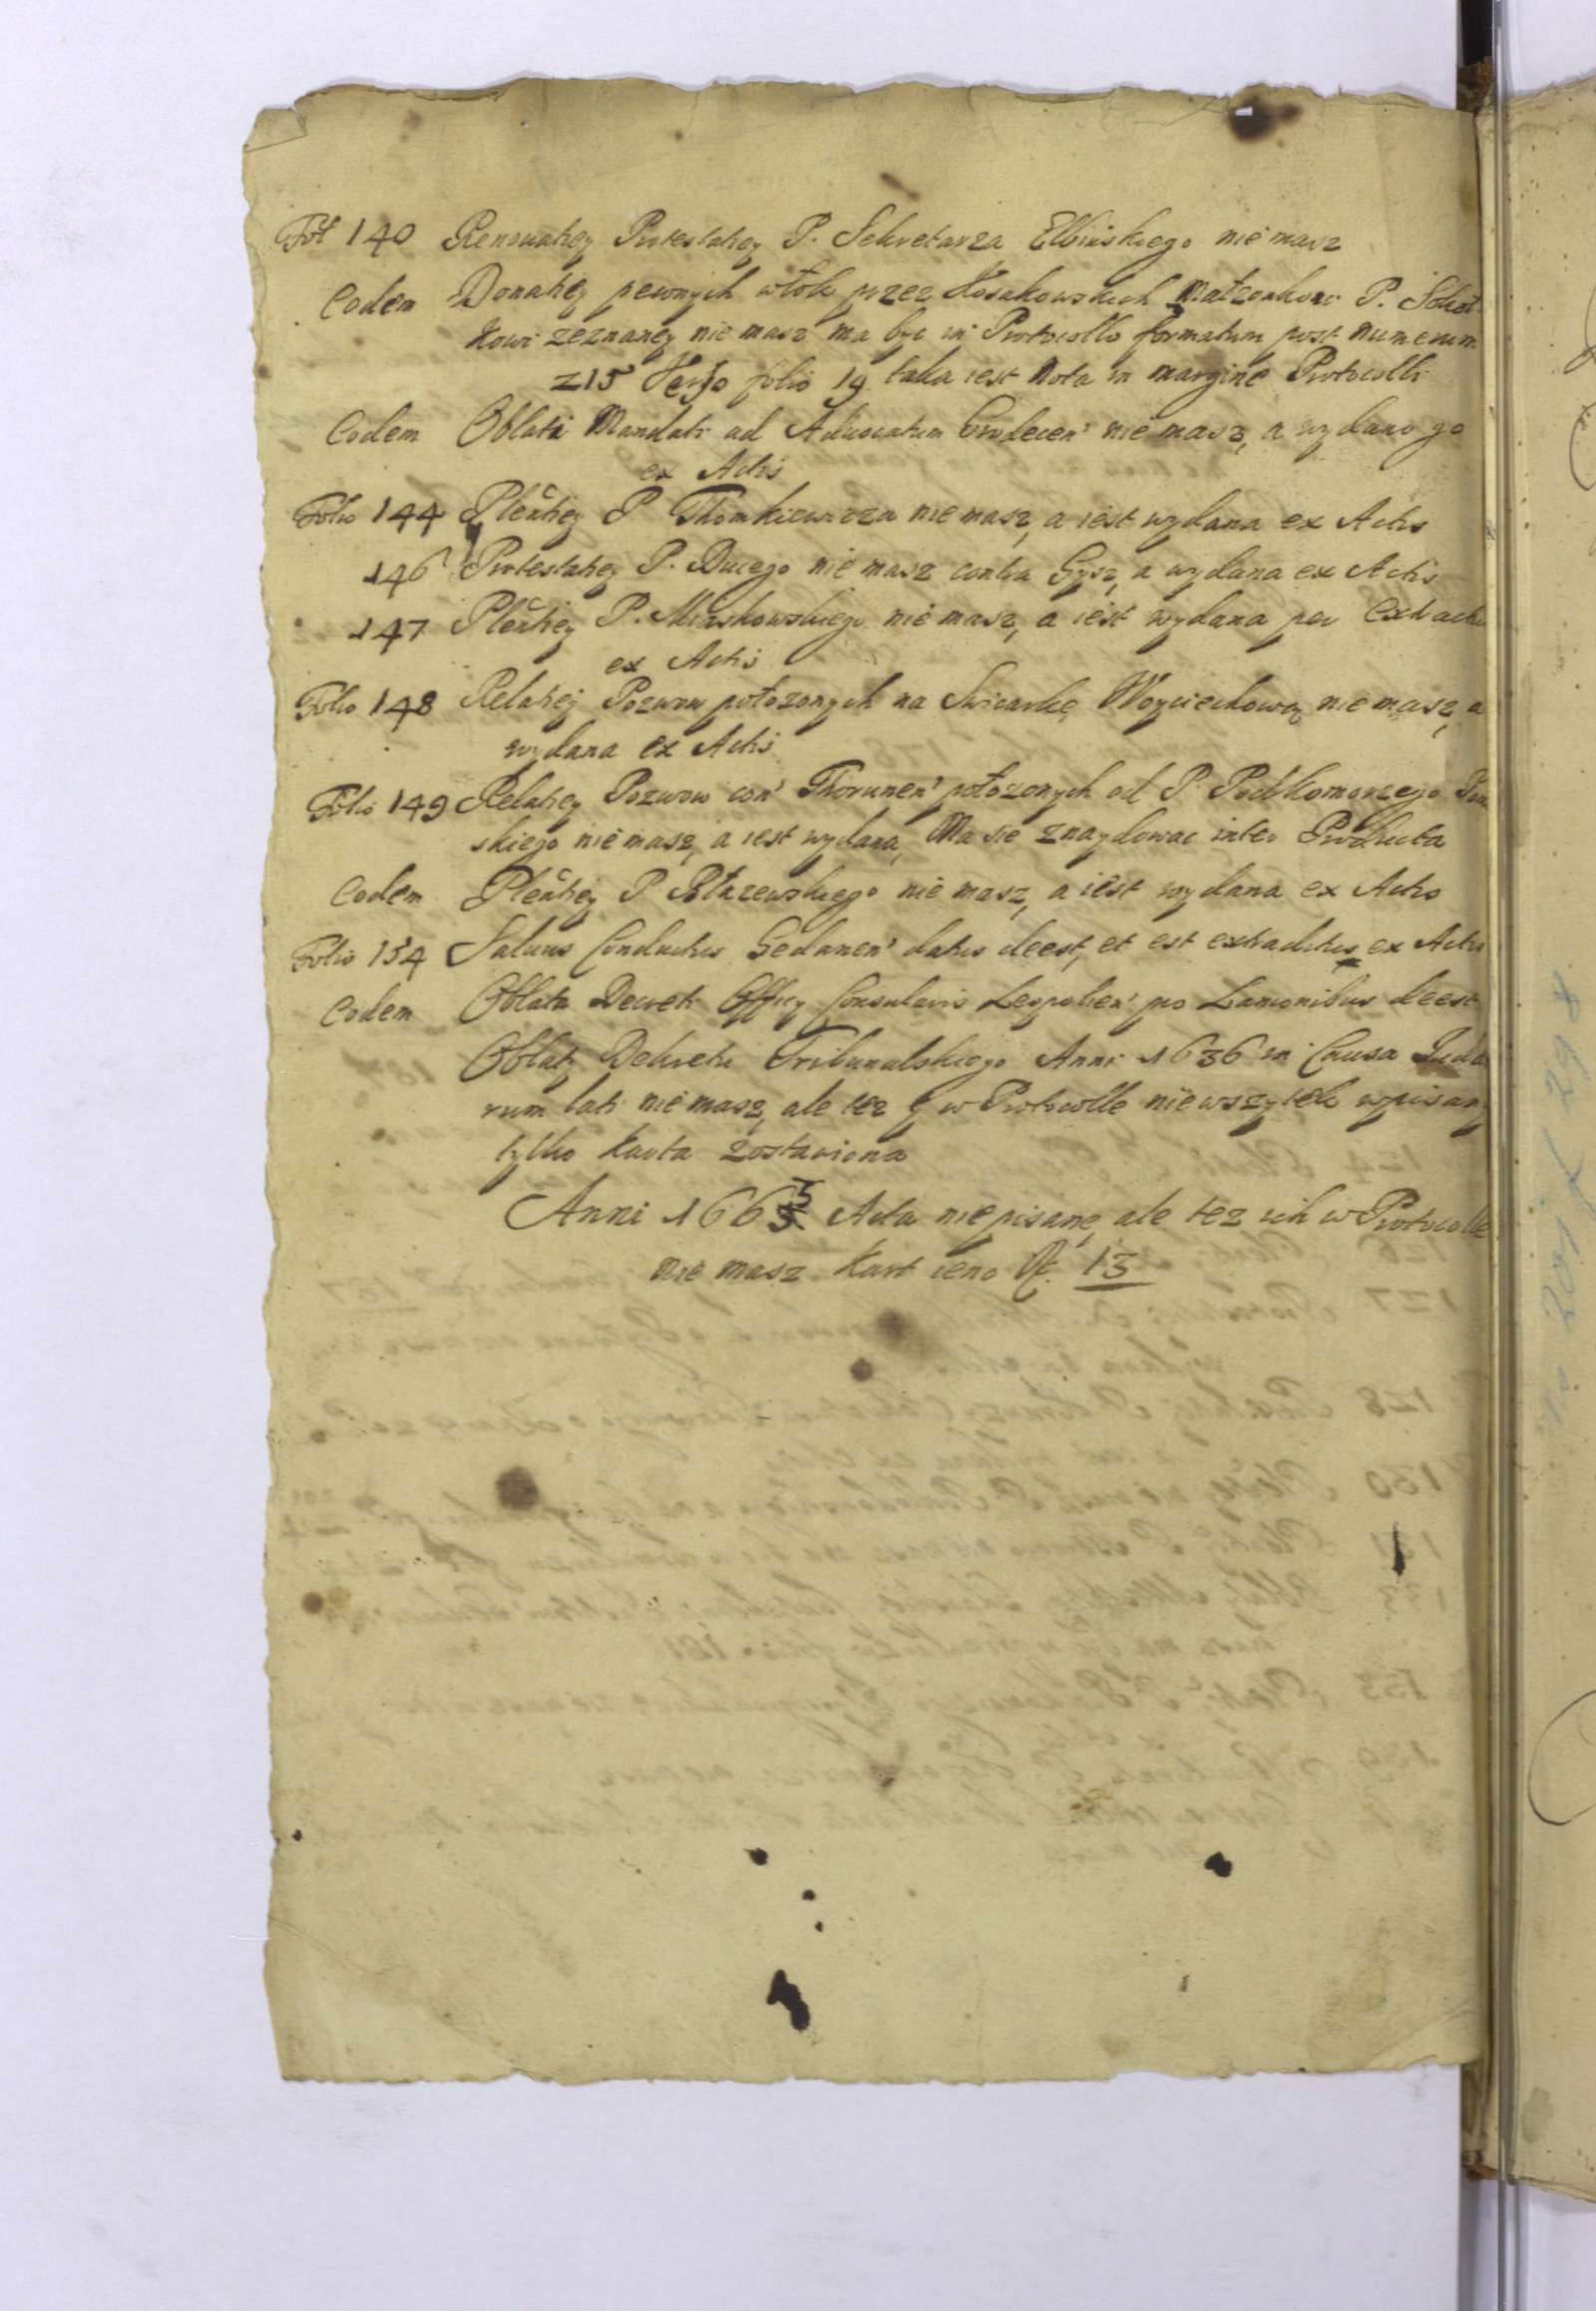 Fol 140 Renouatiey Protestatiey P. Sekretarza Elbinskiego nie masz
Eodem Donatiey pewnych włok przez Kosakowskich Małzonkow P.
kowi zeznaney nie masz ma byc in Protocollo formatum post numerum
215 Verso folio 19 taka iest Nota in margine Protocolli
Eodem Oblata Mandati ad Aduocatum nie masz, a wydano go
ex Actis
Folio 144 Plentiey P Thomkiewicza nie masz, a iest wydana ex Actis
146 Protestatiey P. Ducego nie masz contra a wydana ex Actis
147 Plentiey P. Minskowskiego nie masz, a iest wydana per
ex Actis
Folio 148 Relatiey Pozwow położonych na Woyciechową nie masz, a
wydana ex Actis
Folio 149 Relatiey Pozwow con' Thorunen' położonych od P Podkomorzego
skiego nie masz, a iest wydana, Ma sie znaydowac inter Producta
Eodem Plentiey P Błazewskiego nie masz, a iest wydana ex Actis
Folio 154 Saluus Conductus Gedanen' datus deest, et est extraditus ex Actis
Eodem Oblata Decreti Officy Consularis Leopolien' pro Lanionibus deest
Oblaty Dekretu Tribunalskiego Anni 1636 in Causa
rum lati nie masz, ale tez y w Protocolle nie wszytek
tylko karta zostawiona
Anni 1665 Acta nie pisane, ale tez ich w Protocolle
nie masz kart ieno 13